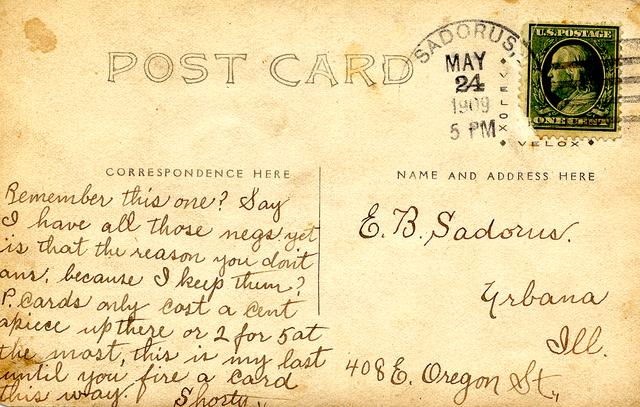 POST CARD
SADORUS,
MAY
24
1909
5 PM
U.S. POSTAGE
ONE CENT
VELOX
VELOX
CORRESPONDENCE HERE
NAME AND ADDRESS HERE
Remember this one? Say
I have all those negs yet
is that the reason you don't
ans. because I keep them?
P. cards only cost a cent
apiece up there or 2 for 5 at
the most, this is my last
until you fire a card
this way. Shorty.
E. B. Sadorus.
Urbana
Ill.
408 E. Oregon St.,